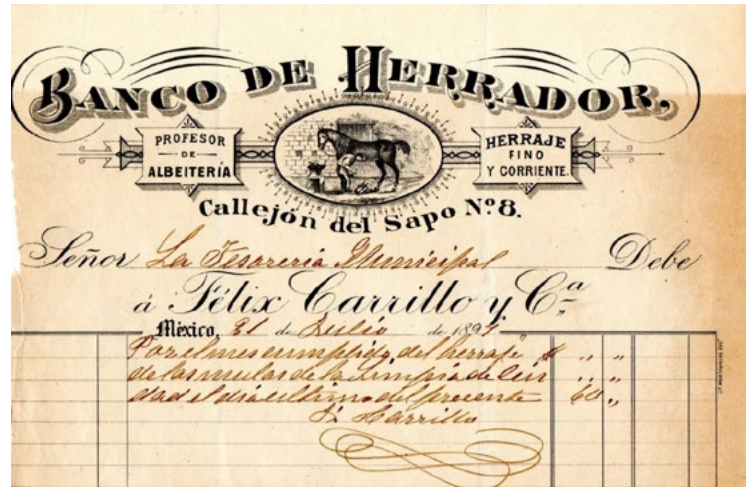 BANCO DE HERRADOR,
PROFESOR
DE
ALBEITERÍA
HERRAJE
FINO
Y CORRIENTE.
Callejón del Sapo Nº 8.
Señor La Tesoreria Municipal Debe
á Félix Carrillo y Cª
México, 31 de Julio de 189
Por el mes cumplido del herraje $ " "
de las mulas de la Limpia de Ciu " "
dad el dia ultimo del precente 60 "
Carrillo